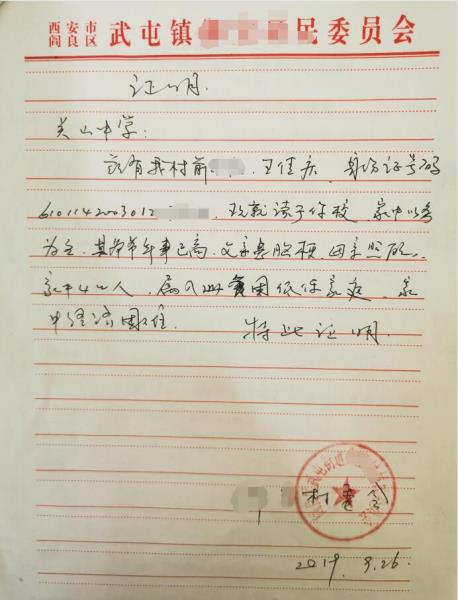 西安市
阎良区 武屯镇 民委员会
证明
关山中学:
兹有我村前 王佳庆,身份证号码
6101142003012 现就读于你校,家中以务
为主,其爷爷年事已高,父亲患脑梗,母亲照顾,
家中4口人,属 困低保家庭,家
中经济困难. 特此证明.
武屯街道
村委会
2019. 9.26.